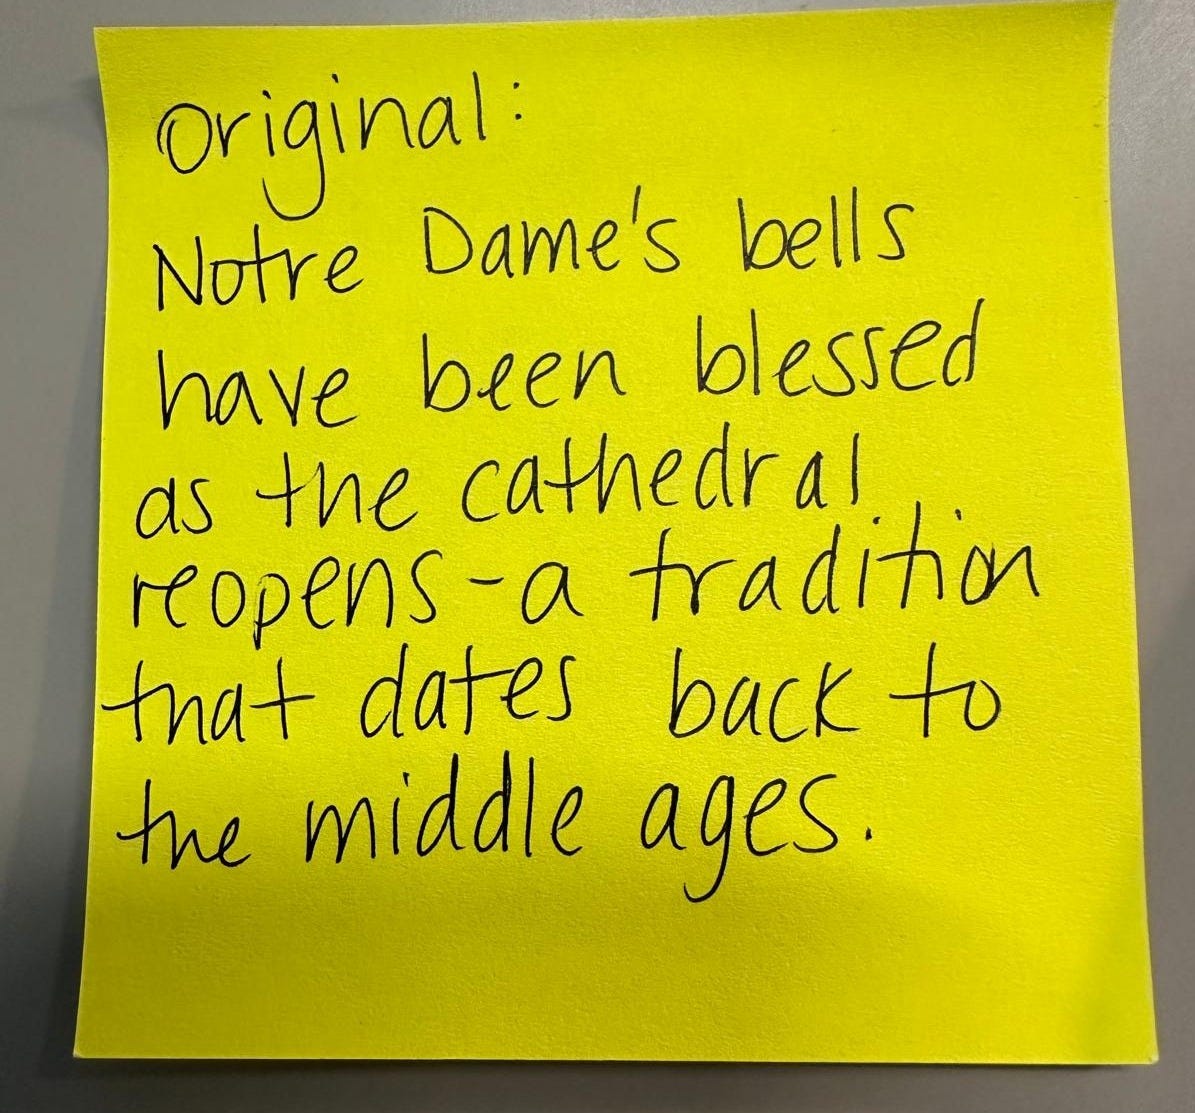 Original:
Notre Dame's bells
have been blessed
as the cathedral
reopens-a tradition
that dates back to
the middle ages.